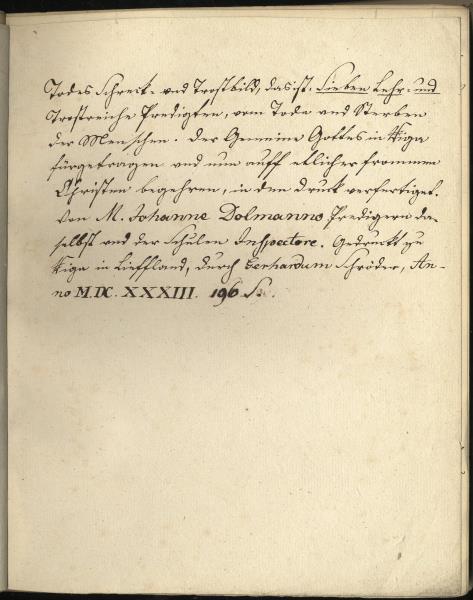 Todes Schreck- und Trostbild, das ist, Sieben Lehr- und
Trostreiche Predigten, vom Tode und Sterben
der Menschen. Der Gemeine Gottes in Riga
fürgetragen und nun auff etlicher frommen
Christen begehren, in den Druck verfertiget.
Von M. Johanne Dolmanno Predigern da-
selbst und der Schulen Inspectore. Gedruckt zu
Riga in Lieffland, durch Gerhardum Schröder, An-
no M.DC.XXXIII. 196 S.